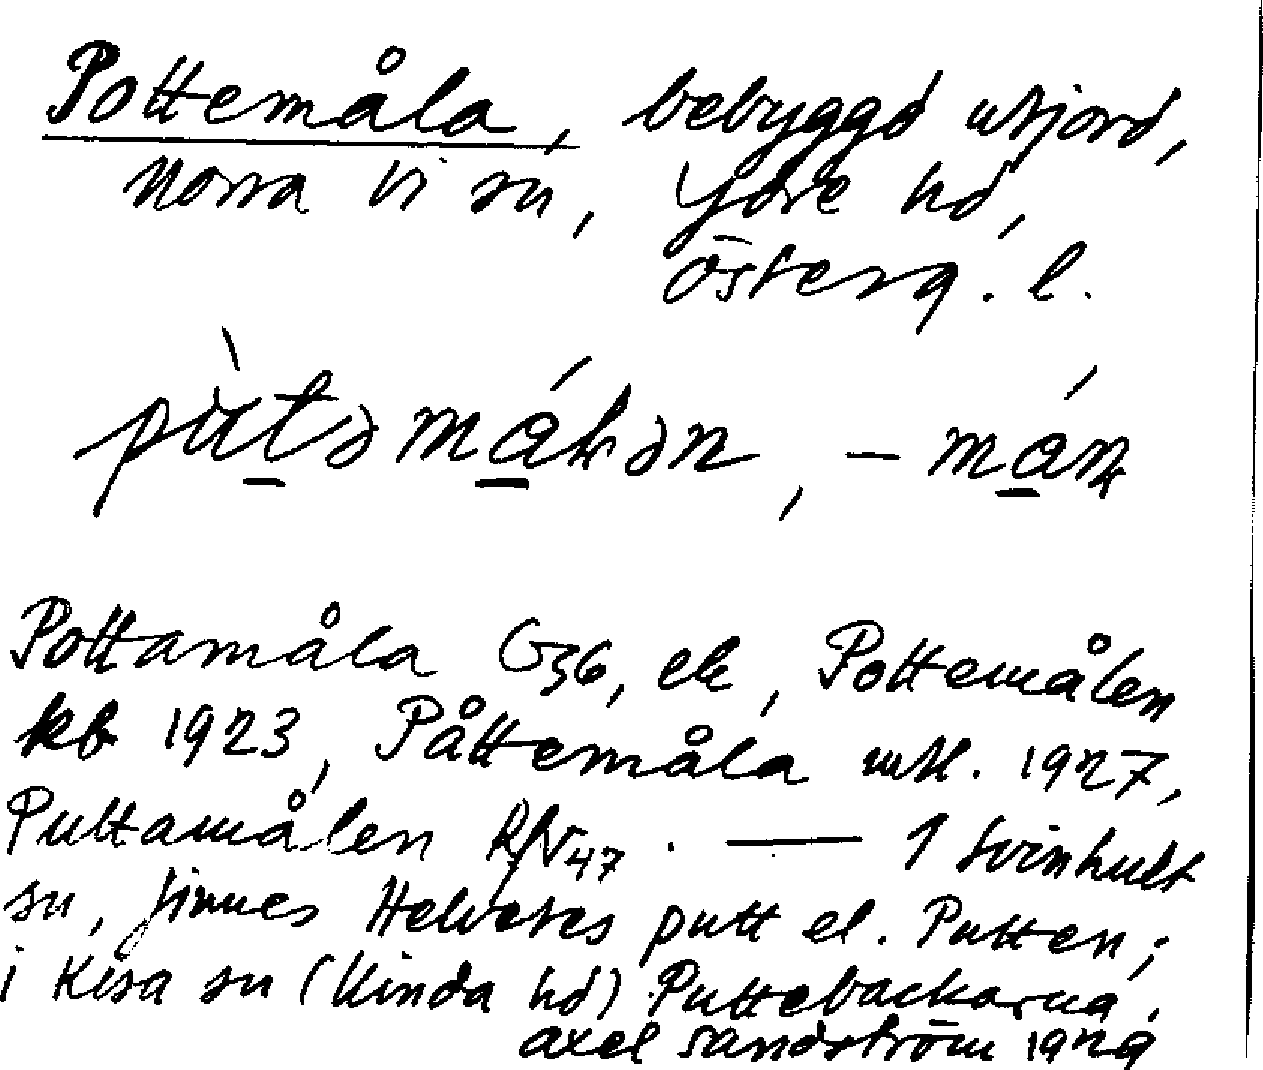 Pottemåla, bebyggd utjord,
Norra Vi sn, Ydre hd,
Österg. l.
pùtəmákən, –mán
Pottamåla G36, ek, Pottemålen
kb 1923, Påttemåla mtl. 1927,
Puttamålen RfV47. — I Svinhult
sn, finnes Helvetes putt el. Putten;
i Kisa sn (Kinda hd) Puttebackarna.
Axel Sandström 1929